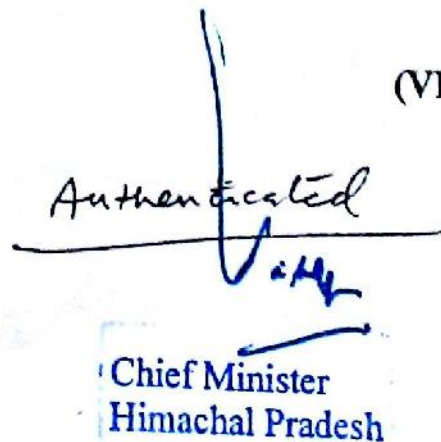 (VI
Authenticated
Chief Minister
Himachal Pradesh